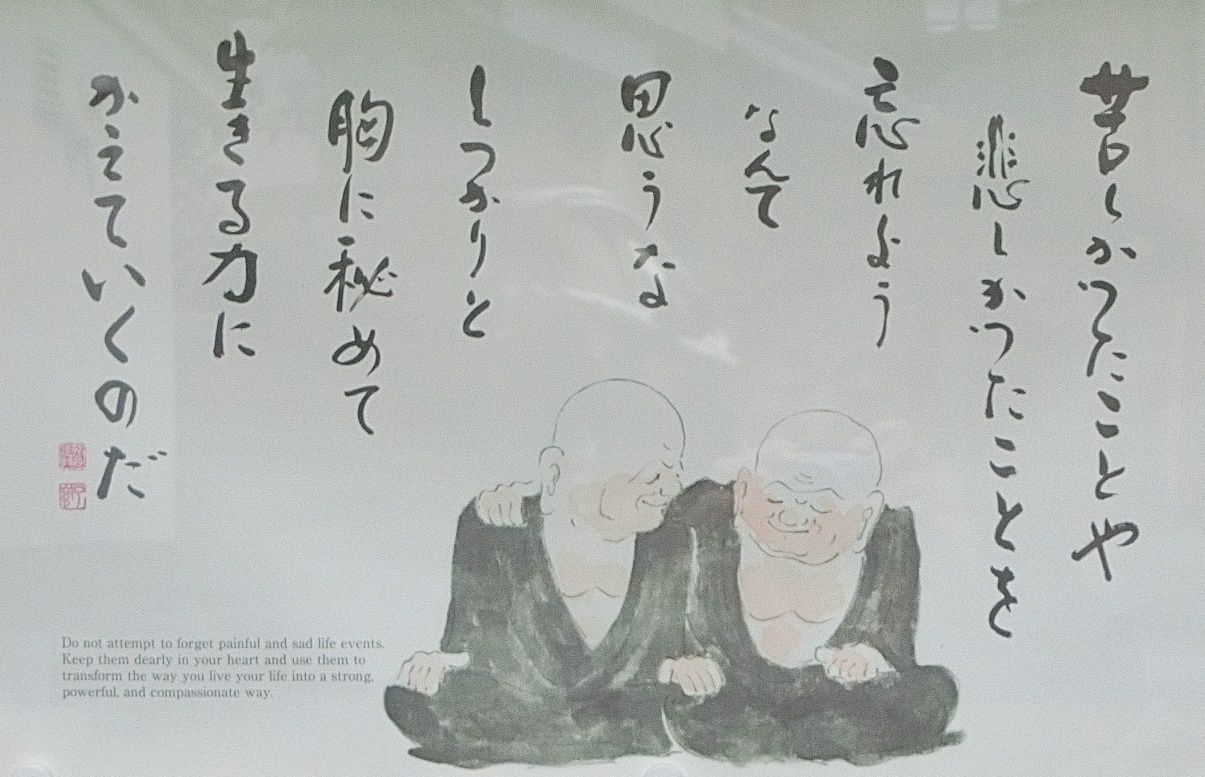 苦しかったことや
悲しかったことを
忘れよう
なんて
思うな
しっかりと
胸に秘めて
生きる力に
かえていくのだ
Do not attempt to forget painful and sad life events.
Keep them dearly in your heart and use them to
transform the way you live your life into a strong,
powerful, and compassionate way.